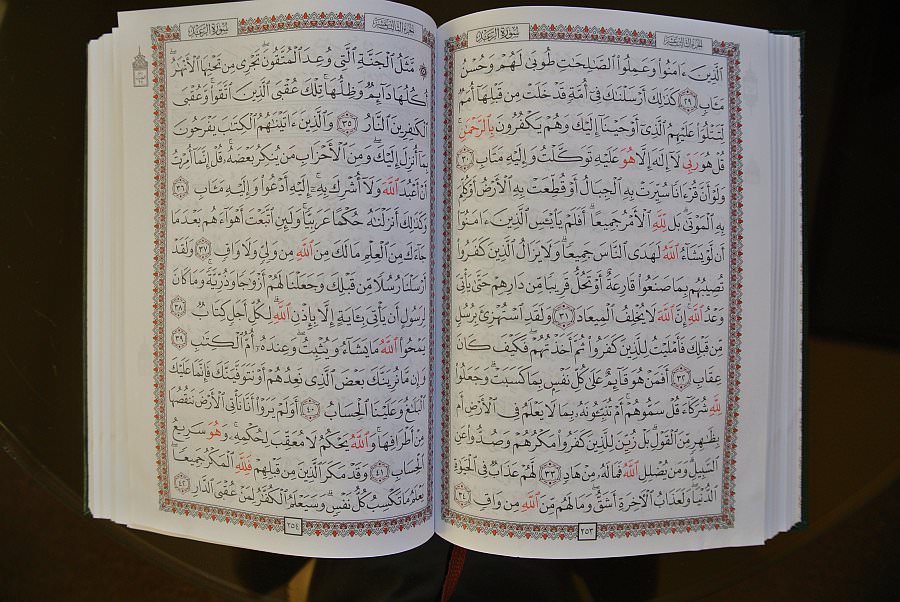 سورة الرعد
الجزء الثالث عشر
الذين ءامنوا وعملوا الصلحت طوبى لهم وحسن
مئاب ٢٩ كذلك أرسلنك فى أمة قد خلت من قبلها أمم
لتتلوا عليهم الذى أوحينا إليك وهم يكفرون بالرحمن
قل هو ربى لا إله إلا هو عليه توكلت وإليه متاب ٣٠
ولو أن قرءانا سيرت به الجبال أو قطعت به الأرض أو كلم
به الموتى بل لله الأمر جميعا أفلم يايئس الذين ءامنوا
أن لو يشاء الله لهدى الناس جميعا ولا يزال الذين كفروا
تصيبهم بما صنعوا قارعة أو تحل قريبا من دارهم حتى يأتى
وعد الله إن الله لا يخلف الميعاد ٣١ ولقد استهزئ برسل
من قبلك فأمليت للذين كفروا ثم أخذتهم فكيف كان
عقاب ٣٢ أفمن هو قائم على كل نفس بما كسبت وجعلوا
لله شركاء قل سموهم أم تنبئونه بما لا يعلم فى الأرض أم
بظهر من القول بل زين للذين كفروا مكرهم وصدوا عن
السبيل ومن يضلل الله فما له من هاد ٣٣ لهم عذاب فى الحيوة
الدنيا ولعذاب الأخرة أشق وما لهم من الله من واق ٣٤
٢٥٣
سورة الرعد
الجزء الثالث عشر
مثل الجنة التى وعد المتقون تجرى من تحتها الأنهر
أكلها دائم وظلها تلك عقبى الذين اتقوا وعقبى
الكفرين النار ٣٥ والذين ءاتينهم الكتب يفرحون
بما أنزل إليك ومن الأحزاب من ينكر بعضه قل إنما أمرت
أن أعبد الله ولا أشرك به إليه أدعوا وإليه مئاب ٣٦
وكذلك أنزلنه حكما عربيا ولئن اتبعت أهواءهم بعد ما
جاءك من العلم ما لك من الله من ولى ولا واق ٣٧ ولقد
أرسلنا رسلا من قبلك وجعلنا لهم أزوجا وذرية وما كان
لرسول أن يأتى بئاية إلا بإذن الله لكل أجل كتاب ٣٨
يمحوا الله ما يشاء ويثبت وعنده أم الكتب ٣٩
وإن ما نرينك بعض الذى نعدهم أو نتوفينك فإنما عليك
البلغ وعلينا الحساب ٤٠ أولم يروا أنا نأتى الأرض ننقصها
من أطرافها والله يحكم لا معقب لحكمه وهو سريع
الحساب ٤١ وقد مكر الذين من قبلهم فلله المكر جميعا
يعلم ما تكسب كل نفس وسيعلم الكفر لمن عقبى الدار ٤٢
٢٥٤